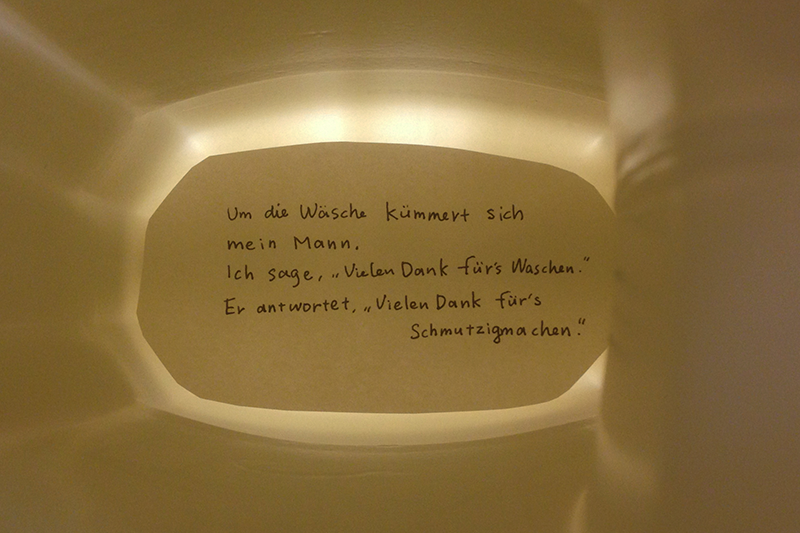 Um die Wäsche kümmert sich
mein Mann.
Ich sage, „Vielen Dank für's Waschen.“
Er antwortet, „Vielen Dank für's
Schmutzigmachen.“